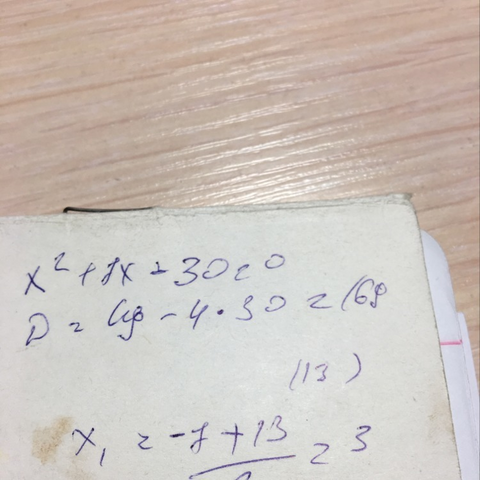 x² + 7x - 30 = 0
D = 49 - 4 · 30 = 169
(13)
x₁ = -7 + 13 / 2 = 3